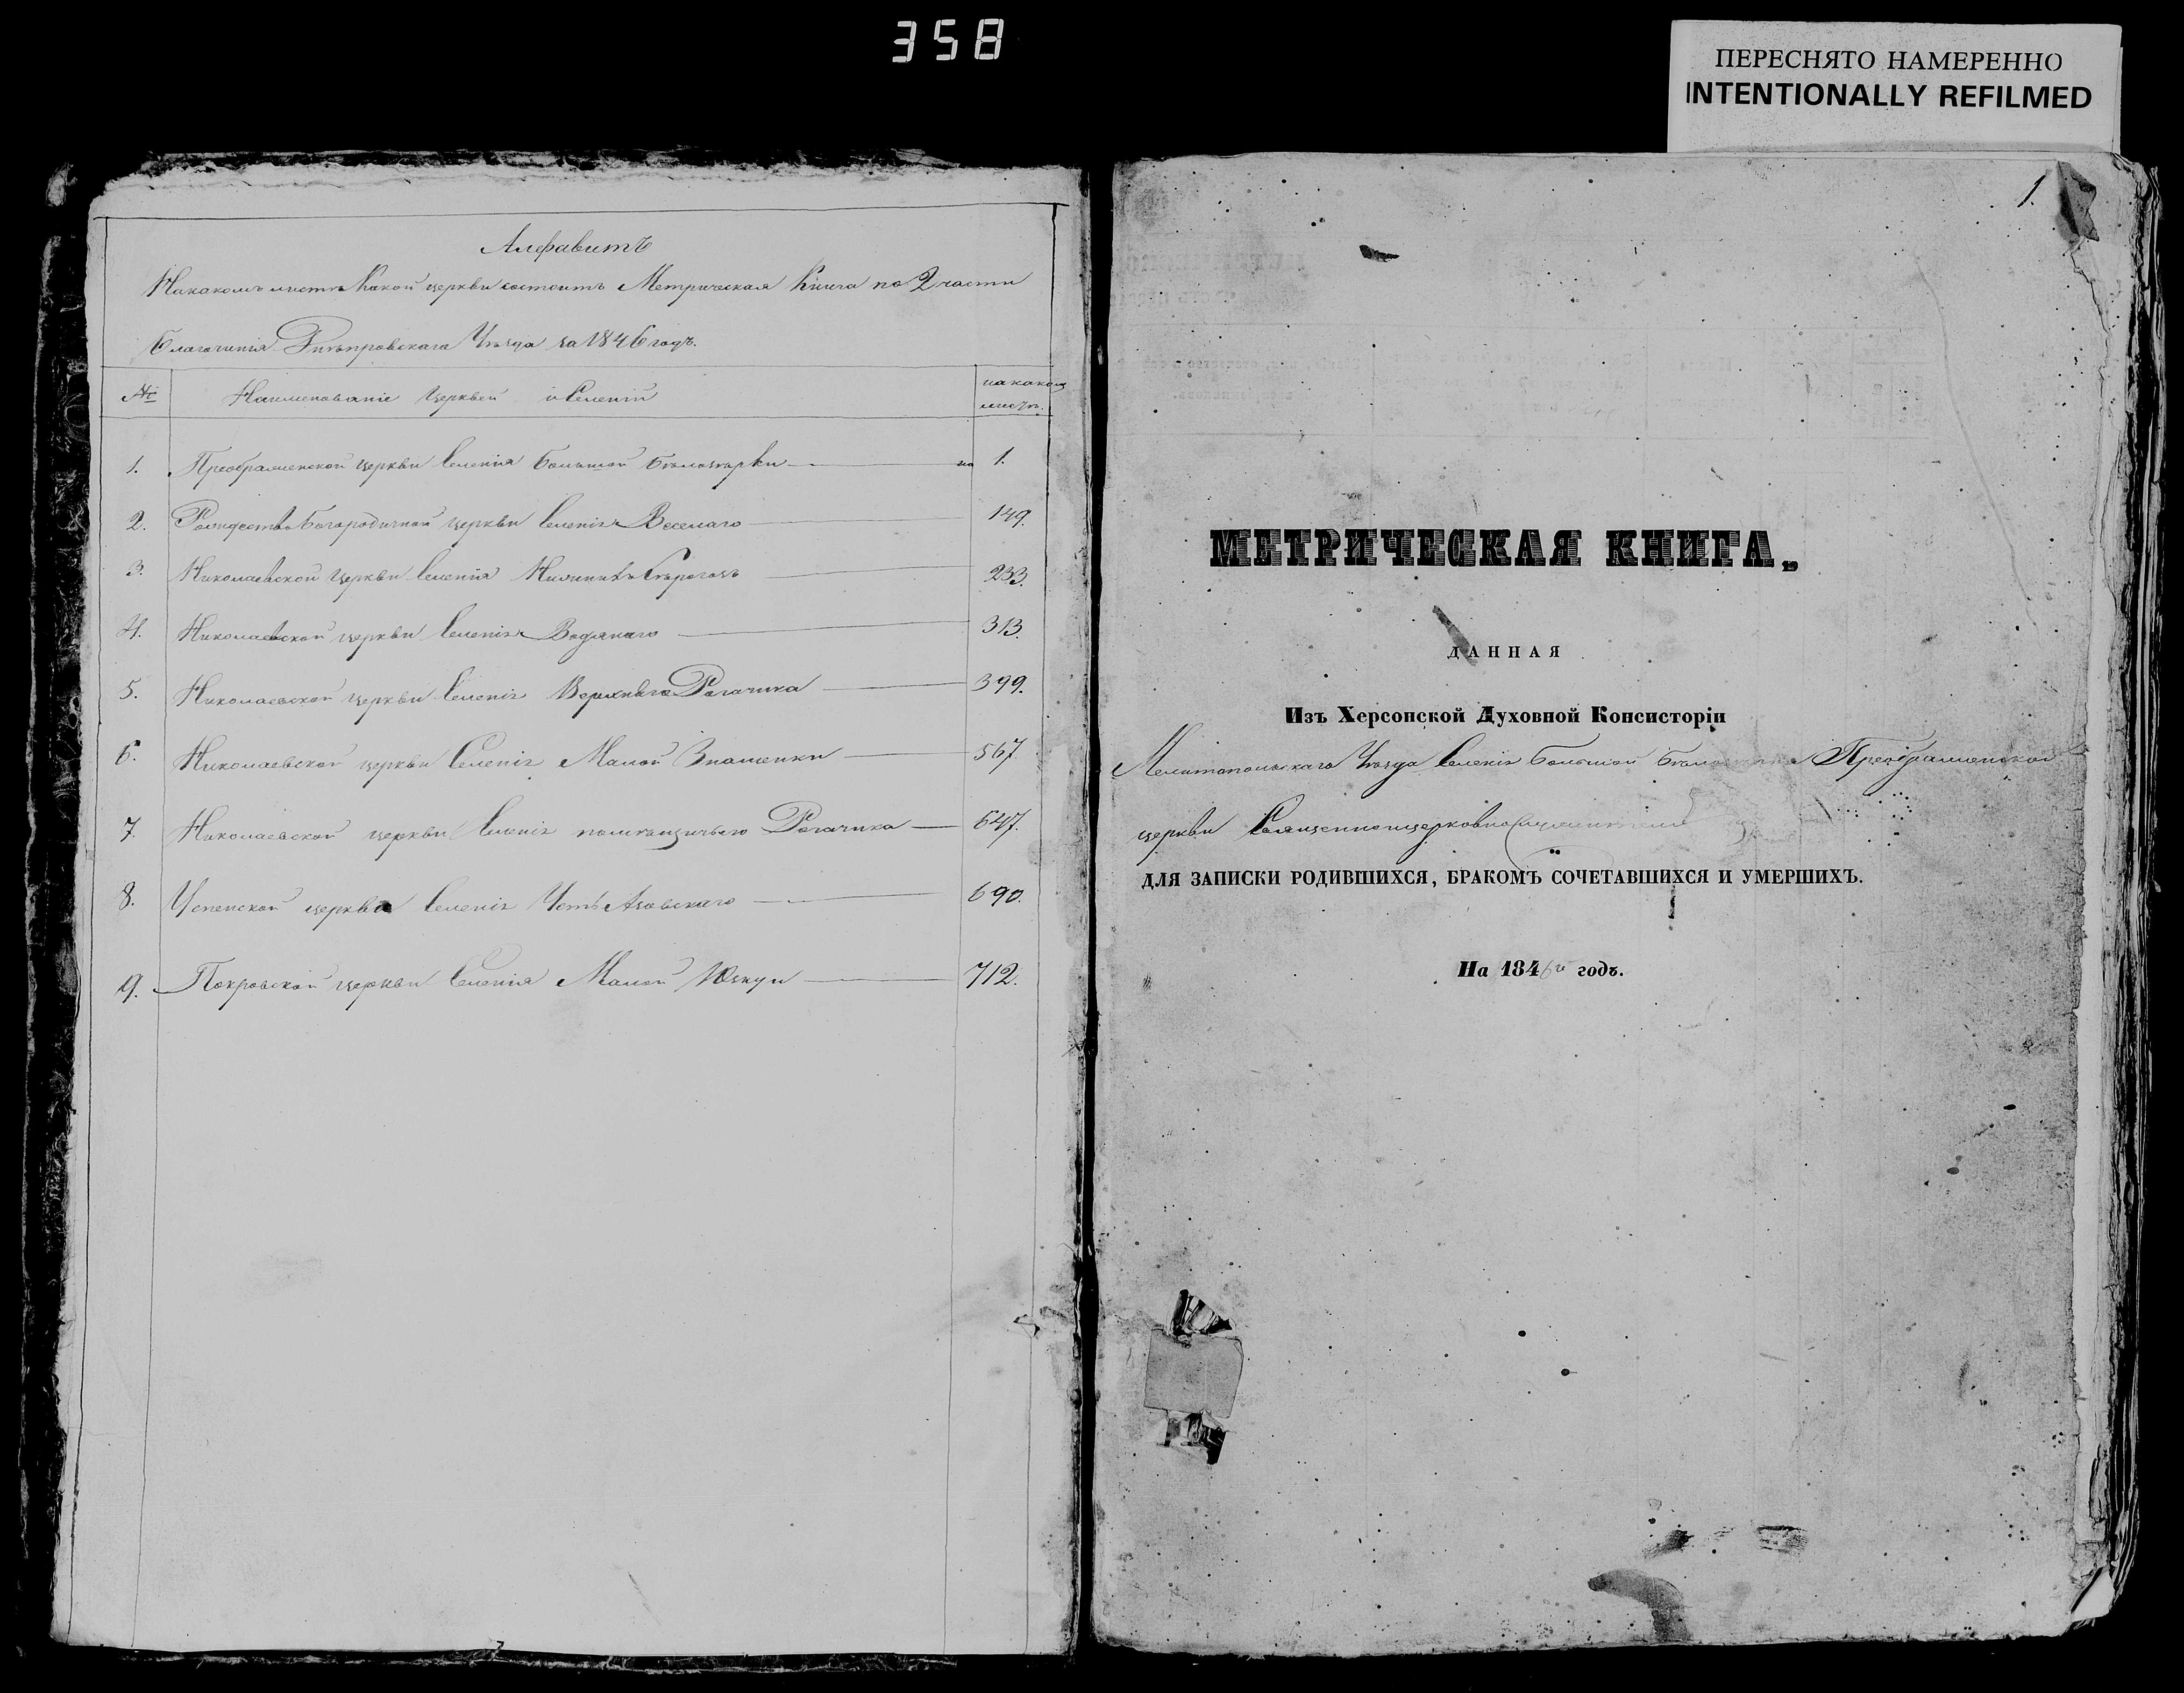 358
ПЕРЕСНЯТО НАМЕРЕННО
INTENTIONALLY REFILMED
Алфавитъ
На какомъ листѣ какой церкви состоитъ Метрическая Книга по 2 части
благочинія Днѣпровскаго Уѣзда за 1846 годъ.
№ Наименованіе Церквей и Селеній на какомъ листѣ.
1. Преображенской церкви Селенія Большой Бѣлозѣрки на 1.
2. Рождество Богородичной церкви Селенія Веселаго 149.
3. Николаевской Церкви Селенія Нижнихъ Сѣрогозъ 233.
4. Николаевской церкви Селенія Водянаго 313.
5. Николаевской церкви Селенія Верхняго Рогачика 399.
6. Николаевской церкви Селенія Малой Знаменки 567.
7. Николаевской церкви Селенія помѣщичьяго Рогачика 647.
8. Успенской церкви Селенія 690.
9. Покровской церкви Селенія Малой 712.
1.
МЕТРИЧЕСКАЯ КНИГА,
ДАННАЯ
Изъ Херсонской Духовной Консисторіи
Мелитопольскаго Уѣзда Селенія Большой Преображенской
церкви Священноцерковнослужителямъ
ДЛЯ ЗАПИСКИ РОДИВШИХСЯ, БРАКОМЪ СОЧЕТАВШИХСЯ И УМЕРШИХЪ.
На 1846й годъ.